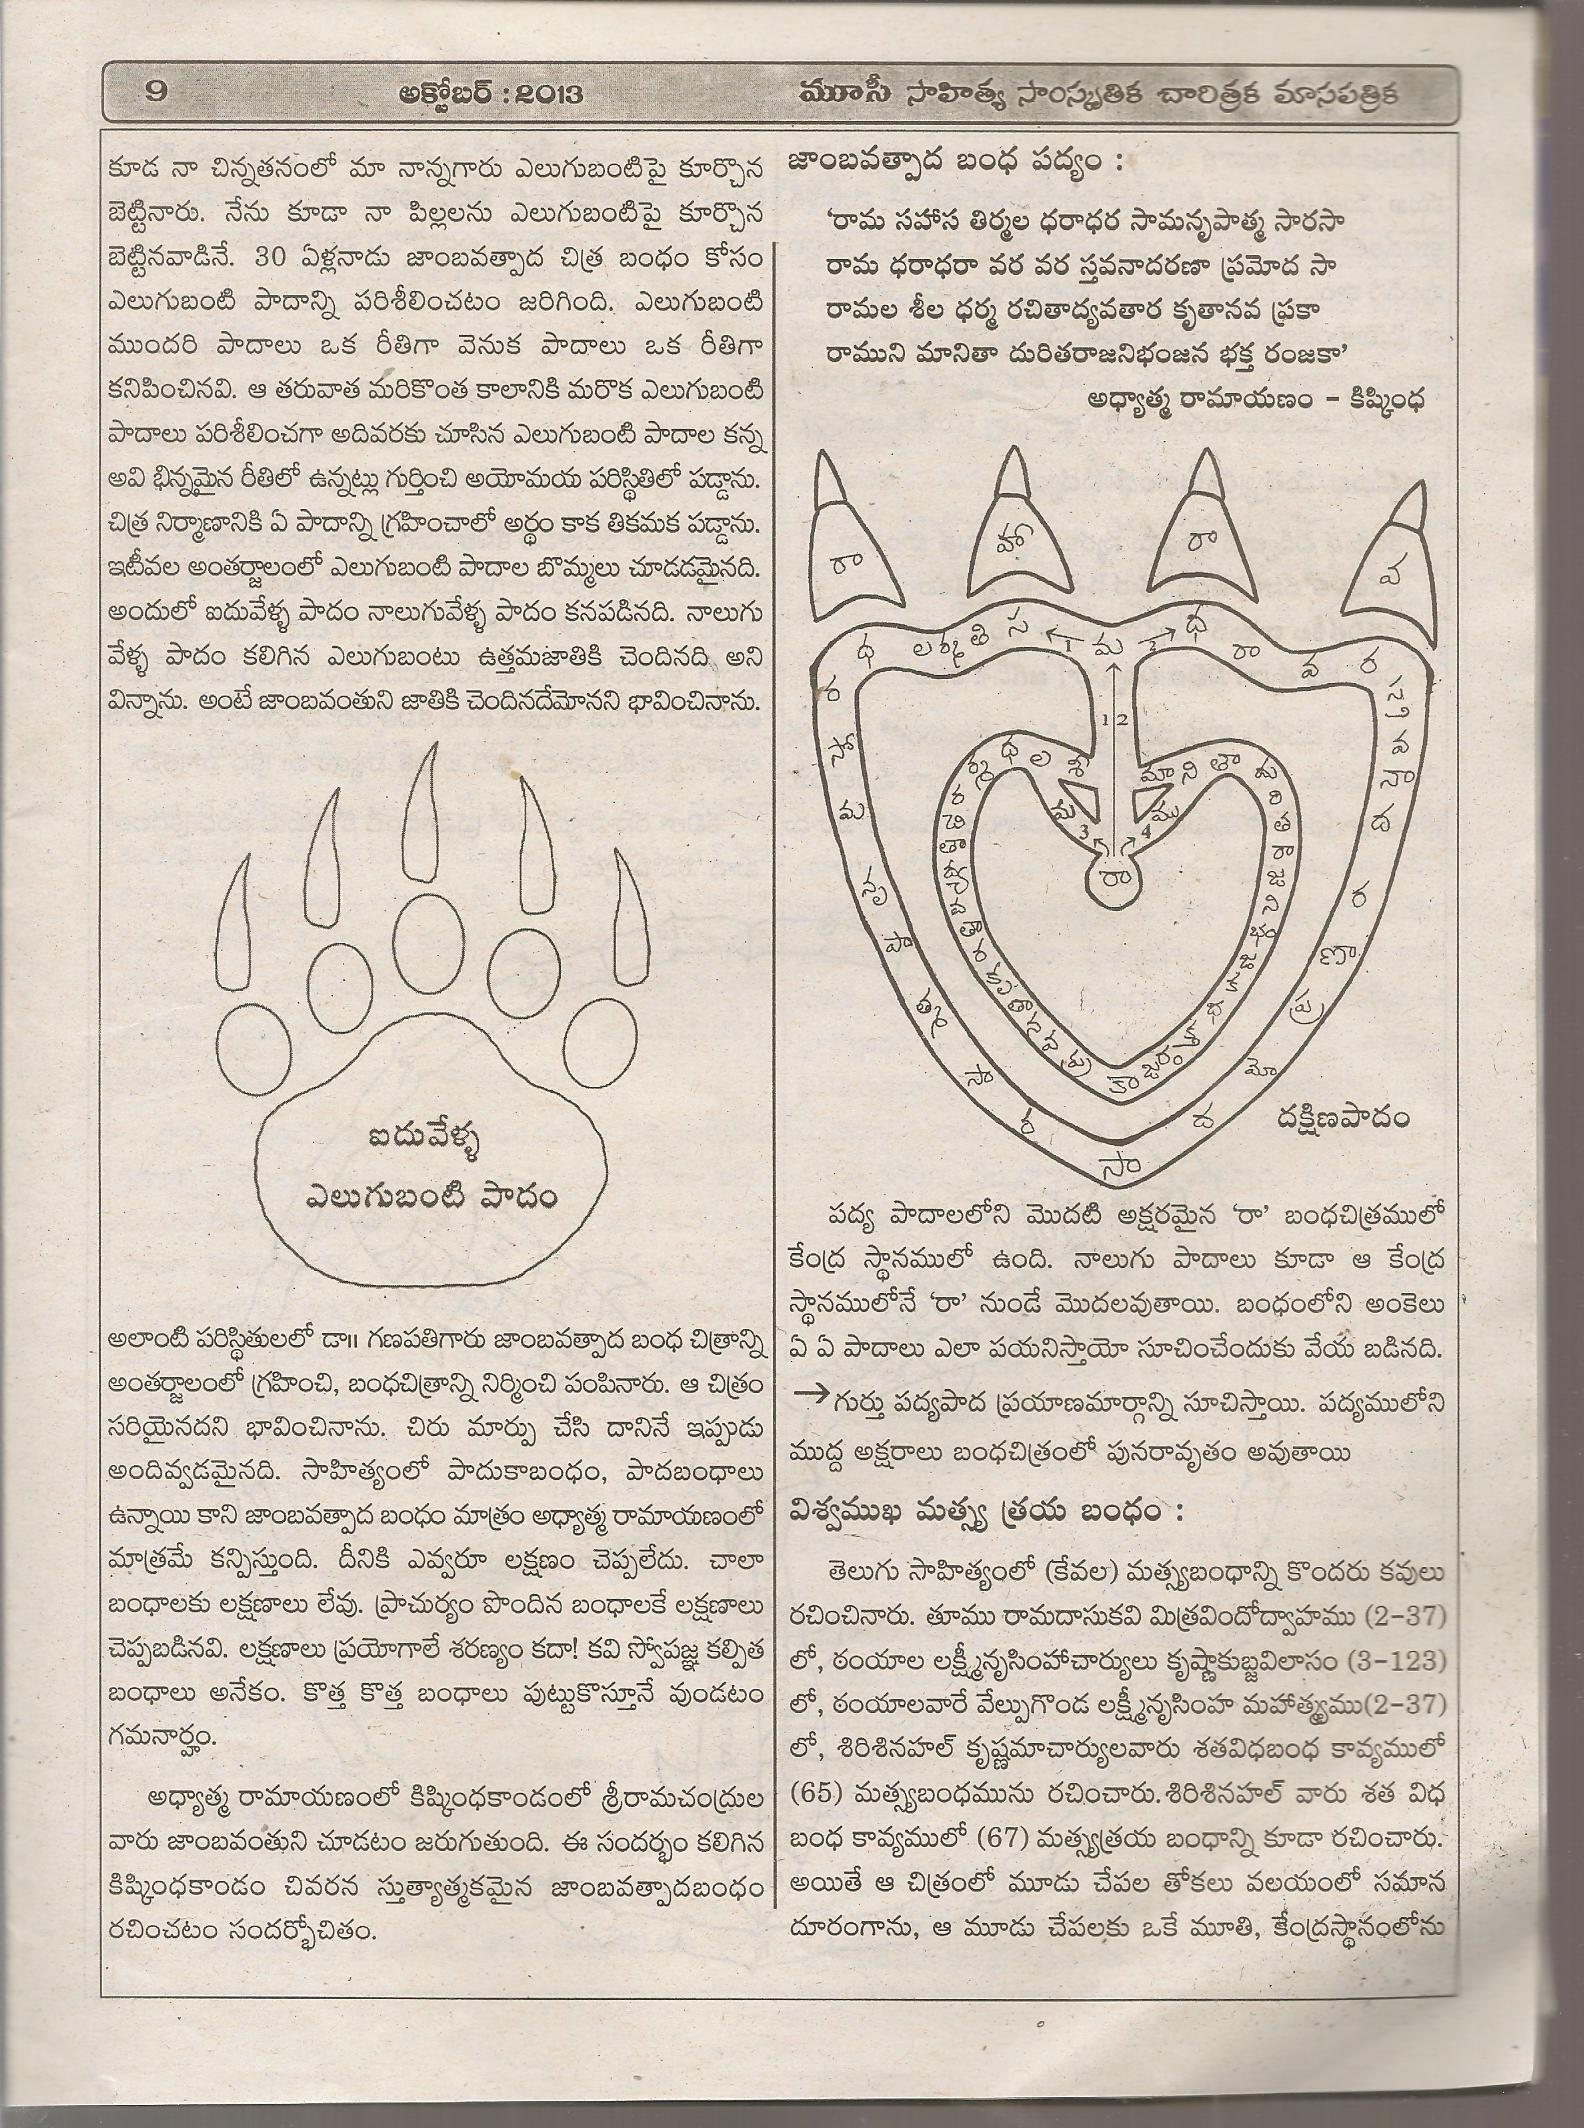 9
అక్టోబర్ : 2013
మూసీ సాహిత్య సాంస్కృతిక చారిత్రక మాసపత్రిక
కూడ నా చిన్నతనంలో మా నాన్నగారు ఎలుగుబంటిపై కూర్చొన
బెట్టినారు. నేను కూడా నా పిల్లలను ఎలుగుబంటిపై కూర్చొన
బెట్టినవాడినే. 30 ఏళ్లనాడు జాంబవత్పాద చిత్ర బంధం కోసం
ఎలుగుబంటి పాదాన్ని పరిశీలించటం జరిగింది. ఎలుగుబంటి
ముందరి పాదాలు ఒక రీతిగా వెనుక పాదాలు ఒక రీతిగా
కనిపించినవి. ఆ తరువాత మరికొంత కాలానికి మరొక ఎలుగుబంటి
పాదాలు పరిశీలించగా అదివరకు చూసిన ఎలుగుబంటి పాదాల కన్న
అవి భిన్నమైన రీతిలో ఉన్నట్లు గుర్తించి అయోమయ పరిస్థితిలో పడ్డాను.
చిత్ర నిర్మాణానికి ఏ పాదాన్ని గ్రహించాలో అర్థం కాక తికమక పడ్డాను.
ఇటీవల అంతర్జాలంలో ఎలుగుబంటి పాదాల బొమ్మలు చూడడమైనది.
అందులో ఐదువేళ్ళ పాదం నాలుగువేళ్ళ పాదం కనపడినది. నాలుగు
వేళ్ళ పాదం కలిగిన ఎలుగుబంటు ఉత్తమజాతికి చెందినది అని
విన్నాను. అంటే జాంబవంతుని జాతికి చెందినదేమోనని భావించినాను.
ఐదువేళ్ళ
ఎలుగుబంటి పాదం
అలాంటి పరిస్థితులలో డా॥ గణపతిగారు జాంబవత్పాద బంధ చిత్రాన్ని
అంతర్జాలంలో గ్రహించి, బంధచిత్రాన్ని నిర్మించి పంపినారు. ఆ చిత్రం
సరియైనదని భావించినాను. చిరు మార్పు చేసి దానినే ఇప్పుడు
అందివ్వడమైనది. సాహిత్యంలో పాదుకాబంధం, పాదబంధాలు
ఉన్నాయి కాని జాంబవత్పాద బంధం మాత్రం అధ్యాత్మ రామాయణంలో
మాత్రమే కన్పిస్తుంది. దీనికి ఎవ్వరూ లక్షణం చెప్పలేదు. చాలా
బంధాలకు లక్షణాలు లేవు. ప్రాచుర్యం పొందిన బంధాలకే లక్షణాలు
చెప్పబడినవి. లక్షణాలు ప్రయోగాలే శరణ్యం కదా! కవి స్వోపజ్ఞ కల్పిత
బంధాలు అనేకం. కొత్త కొత్త బంధాలు పుట్టుకొస్తూనే వుండటం
గమనార్హం.
అధ్యాత్మ రామాయణంలో కిష్కింధకాండంలో శ్రీరామచంద్రుల
వారు జాంబవంతుని చూడటం జరుగుతుంది. ఈ సందర్భం కలిగిన
కిష్కింధకాండం చివరన స్తుత్యాత్మకమైన జాంబవత్పాదబంధం
రచించటం సందర్భోచితం.
జాంబవత్పాద బంధ పద్యం :
'రామ సహాస తిర్మల ధరాధర సామనృపాత్మ సారసా
రామ ధరాధరా వర వర స్తవనాదరణా ప్రమోద సా
రామల శీల ధర్మ రచితాద్యవతార కృతానవ ప్రకా
రాముని మానితా దురితరాజనిభంజన భక్త రంజకా'
అధ్యాత్మ రామాయణం - కిష్కింధ
రా హా రా వ
ధ ల ర్మ తి స 1 మ 2 ధ రా వ ర
ర సో మ నృ పా త్మ సా ర సా
స్త వ నా ద ర ణా ప్ర మో ద
1 2
శీ ల ధ ర్మ ర చి తా ద్య వ తా ర కృ తా న వ ప్ర కా
మా ని తా దు రి త రా జ ని భం జ న భ క్త రం జ
మ 3 4 ము
రా
దక్షిణపాదం
పద్య పాదాలలోని మొదటి అక్షరమైన 'రా' బంధచిత్రములో
కేంద్ర స్థానములో ఉంది. నాలుగు పాదాలు కూడా ఆ కేంద్ర
స్థానములోనే 'రా' నుండే మొదలవుతాయి. బంధంలోని అంకెలు
ఏ ఏ పాదాలు ఎలా పయనిస్తాయో సూచించేందుకు వేయ బడినది.
→గుర్తు పద్యపాద ప్రయాణమార్గాన్ని సూచిస్తాయి. పద్యములోని
ముద్ద అక్షరాలు బంధచిత్రంలో పునరావృతం అవుతాయి
విశ్వముఖ మత్స్య త్రయ బంధం :
తెలుగు సాహిత్యంలో (కేవల) మత్స్యబంధాన్ని కొందరు కవులు
రచించినారు. తూము రామదాసుకవి మిత్రవిందోద్వాహము (2-37)
లో, ఠంయాల లక్ష్మీనృసింహాచార్యులు కృష్ణాకుబ్జవిలాసం (3-123)
లో, ఠంయాలవారే వేల్పుగొండ లక్ష్మీనృసింహ మహాత్మ్యము(2-37)
లో, శిరిశినహల్ కృష్ణమాచార్యులవారు శతవిధబంధ కావ్యములో
(65) మత్స్యబంధమును రచించారు. శిరిశినహల్ వారు శత విధ
బంధ కావ్యములో (67) మత్స్యత్రయ బంధాన్ని కూడా రచించారు.
అయితే ఆ చిత్రంలో మూడు చేపల తోకలు వలయంలో సమాన
దూరంగాను, ఆ మూడు చేపలకు ఒకే మూతి, కేంద్రస్థానంలోను